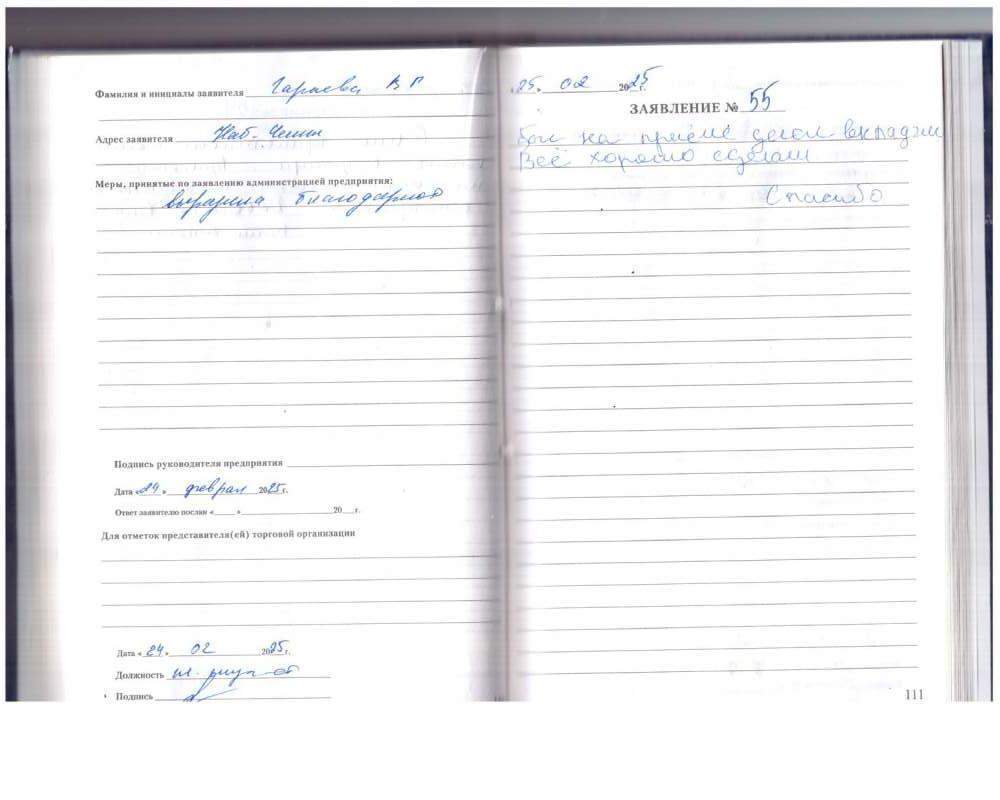 Фамилия и инициалы заявителя Гараева В Г
Адрес заявителя Наб-Челны
Меры, принятые по заявлению администрацией предприятия:
выражена благодарност
Подпись руководителя предприятия
Дата «24» феврал 2025г.
Ответ заявителю послан « » 20 г.
Для отметок представителя(ей) торговой организации
Дата «24» 02 2025г.
Должность
Подпись
25. 02 2025г.
ЗАЯВЛЕНИЕ № 55
на приёме делал вкладки
Всё хорошо сделали
Спасибо
111